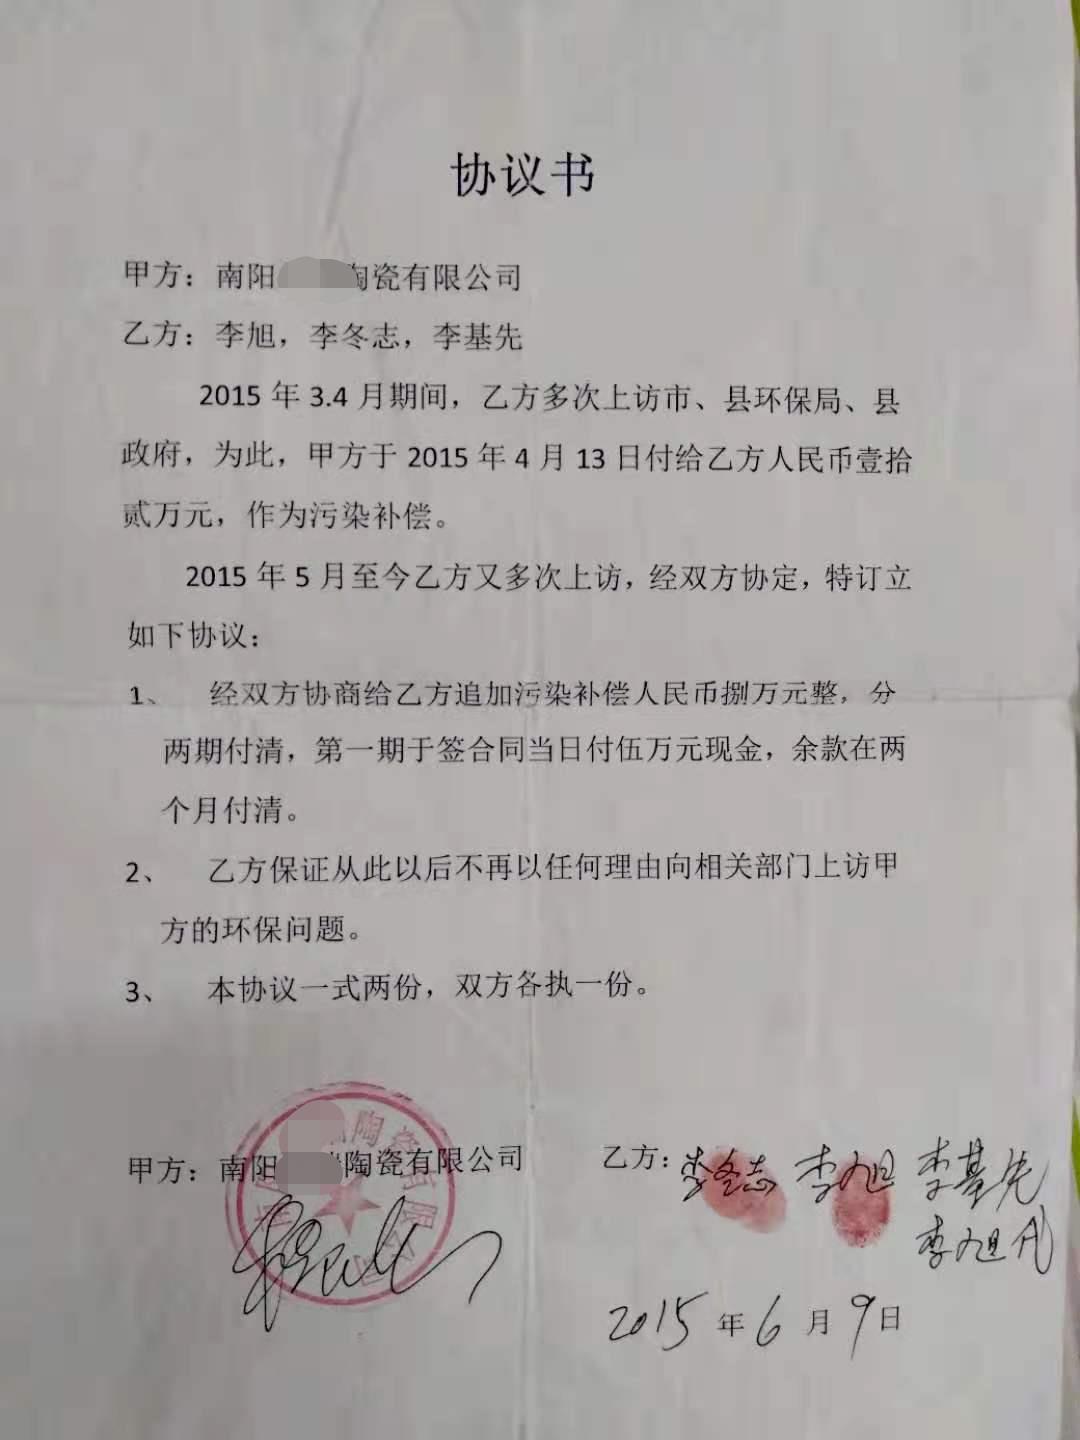 协议书
甲方：南阳 陶瓷有限公司
乙方：李旭，李冬志，李基先
2015 年 3.4 月期间，乙方多次上访市、县环保局、县
政府，为此，甲方于 2015 年 4 月 13 日付给乙方人民币壹拾
贰万元，作为污染补偿。
2015 年 5 月至今乙方又多次上访，经双方协定，特订立
如下协议：
1、 经双方协商给乙方追加污染补偿人民币捌万元整，分
两期付清，第一期于签合同当日付伍万元现金，余款在两
个月付清。
2、 乙方保证从此以后不再以任何理由向相关部门上访甲
方的环保问题。
3、 本协议一式两份，双方各执一份。
陶瓷有限公司
甲方：南阳 陶瓷有限公司
乙方：李冬志 李旭 李基先
李旭代
2015 年 6 月 9 日